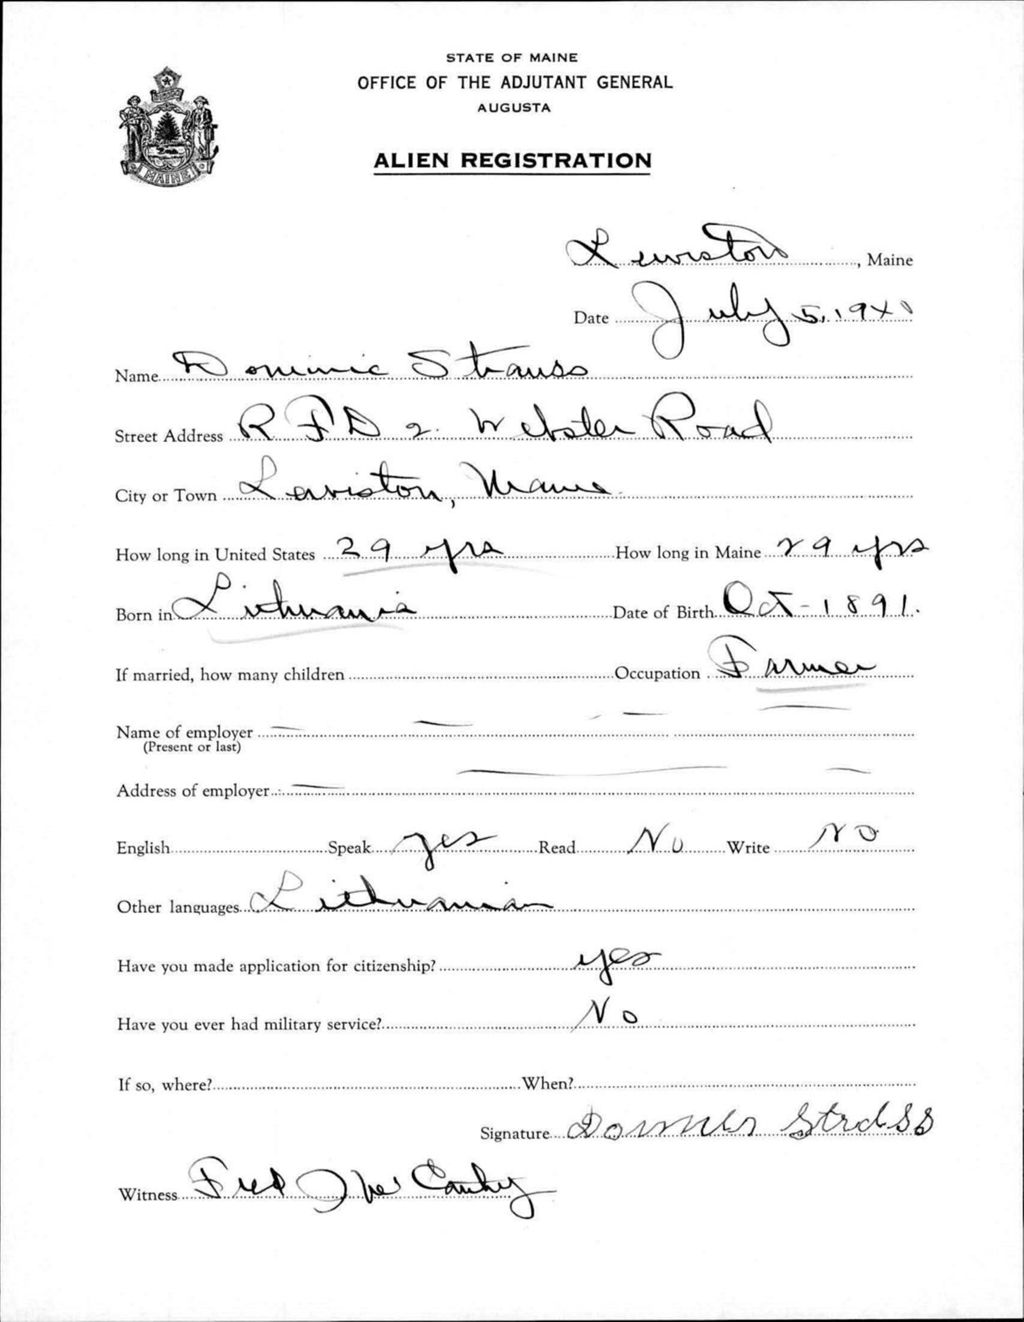 STATE OF MAINE
OFFICE OF THE ADJUTANT GENERAL
AUGUSTA
ALIEN REGISTRATION
MAINE
Lewiston, Maine
Date July 5, 1940
Name Dominic Strauss
Street Address RFD 2. Webster Road
City or Town Lewiston, Maine
How long in United States 29 yrs How long in Maine 29 yrs
Born in Lithuania Date of Birth Oct - 1891.
If married, how many children Occupation Farmer
Name of employer
(Present or last)
Address of employer
English Speak yes Read No Write No
Other languages Lithuanian
Have you made application for citizenship? yes
Have you ever had military service? No
If so, where? When?
Signature
Witness Fred J Mc Carthy